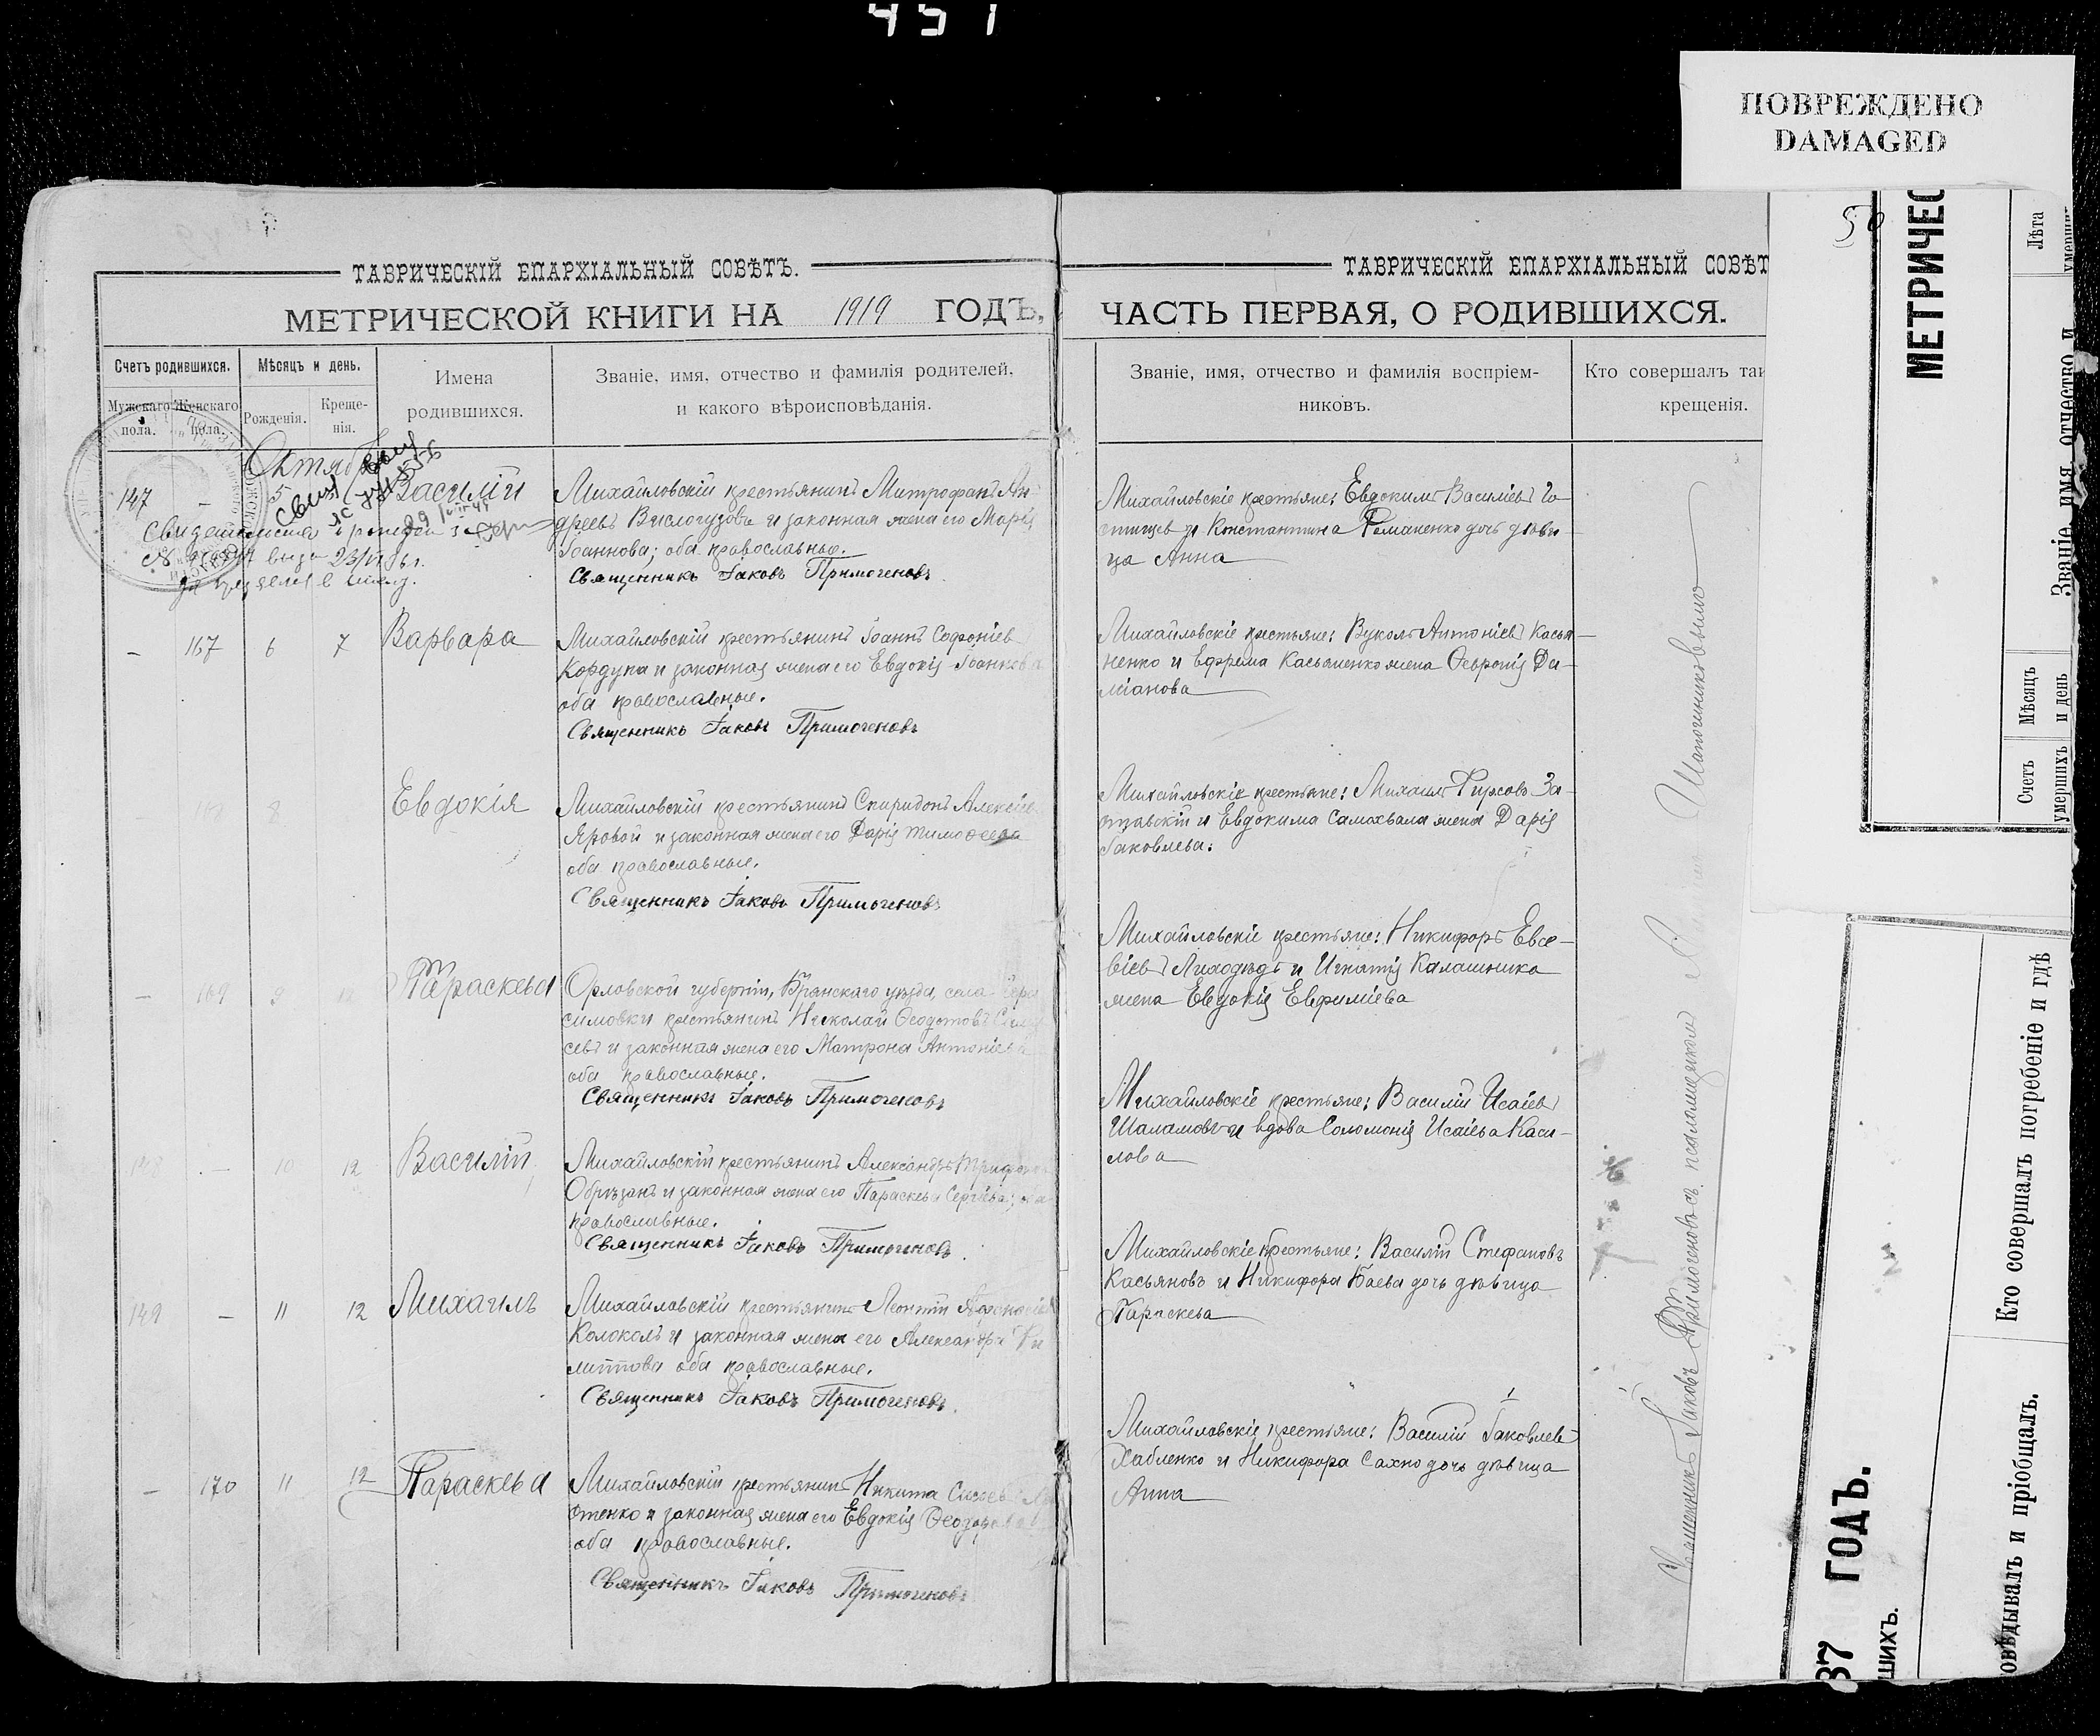 451
ПОВРЕЖДЕНО
DAMAGED
50
ТАВРИЧЕСКІЙ ЕПАРХІАЛЬНЫЙ СОВѢТЪ.
МЕТРИЧЕСКОЙ КНИГИ НА 1919 ГОДЪ,
Счетъ родившихся.
Мѣсяцъ и день.
Имена
родившихся.
Званіе, имя, отчество и фамилія родителей,
и какого вѣроисповѣданія.
Мужскаго
пола.
Женскаго
пола.
Рожденія.
Креще-
нія.
Октябрь
147 - 5 Василій
Михайловскій крестьянинъ Митрофанъ Ан-
дреевъ Вислогузовъ и законная жена его Марія
Іоаннова; оба православные.
Священникъ Іаковъ Примогеновъ
- 167 6 7 Варвара
Михайловскій крестьянинъ Іоаннъ Софоніев
Кордука и законная жена его Евдокія Іоаннова
оба православные.
Священникъ Іаковъ Примогеновъ
168 8 Евдокія
Михайловскій крестьянинъ Спиридонъ Алексіев
Яровой и законная жена его Дарія Тимоѳеева
оба православные.
Священникъ Іаковъ Примогеновъ
- 169 9 12 Параскева
Орловской губерніи, Брянскаго уѣзда, села
симовки крестьянинъ Николай Ѳеодотовъ
севъ и законная жена его Матрона Антоніев
оба православные.
Священникъ Іаковъ Примогеновъ
148 - 10 12 Василій
Михайловскій крестьянинъ Александръ
Обрѣзанъ и законная жена его Параскева Сергіева; оба
православные.
Священникъ Іаковъ Примогеновъ
149 - 11 12 Михаилъ
Михайловскій крестьянинъ Леонтій
Колоколъ и законная жена его Александра Фи
липпова оба православные.
Священникъ Іаковъ Примогеновъ.
- 170 11 12 Параскева
Михайловскій крестьянинъ Никита
отенко и законная жена его Евдокія
оба православные.
Священникъ Іаковъ Примогеновъ
ТАВРИЧЕСКІЙ ЕПАРХІАЛЬНЫЙ СОВѢТ
ЧАСТЬ ПЕРВАЯ, О РОДИВШИХСЯ.
Званіе, имя, отчество и фамилія воспріем-
никовъ.
Кто совершалъ таи
крещенія.
Михайловскіе крестьяне: Евдокимъ Василіевъ Го-
и Константина Романенко дочь дѣви-
ца Анна
Михайловскіе крестьяне: Вуколъ Антоніев Касья-
ненко и Ефрема Касьяненко жена Ѳевронія Да-
міанова
Михайловскіе крестьяне: Михаилъ Фирсовъ За-
и Евдокима Самохвала жена Дарія
Іаковлева.
Михайловскіе крестьяне: Никифоръ Евсе-
віев Лиходѣдъ и Игнатія Калашника
жена Евдокія Евфиміева
Михайловскіе крестьяне: Василій Исаіев
Шаламовъ и вдова Соломонія Исаіева Каси-
лова
Михайловскіе крестьяне: Василій Стефановъ
Касьяновъ и Никифора Баева дочь дѣвица
Параскева
Михайловскіе крестьяне: Василій Іаковлев
Хабленко и Никифора Сахно дочь дѣвица
Анна
Священникъ Іаковъ Примогеновъ съ псаломщикомъ
МЕТРИЧЕС
Лѣта
Званіе, имя, отчество и
Мѣсяцъ
и день
Счетъ
умершихъ
Кто совершалъ погребеніе и гдѣ
овѣдывалъ и пріобщалъ.
37 ГОДЪ.
ШИХЪ.